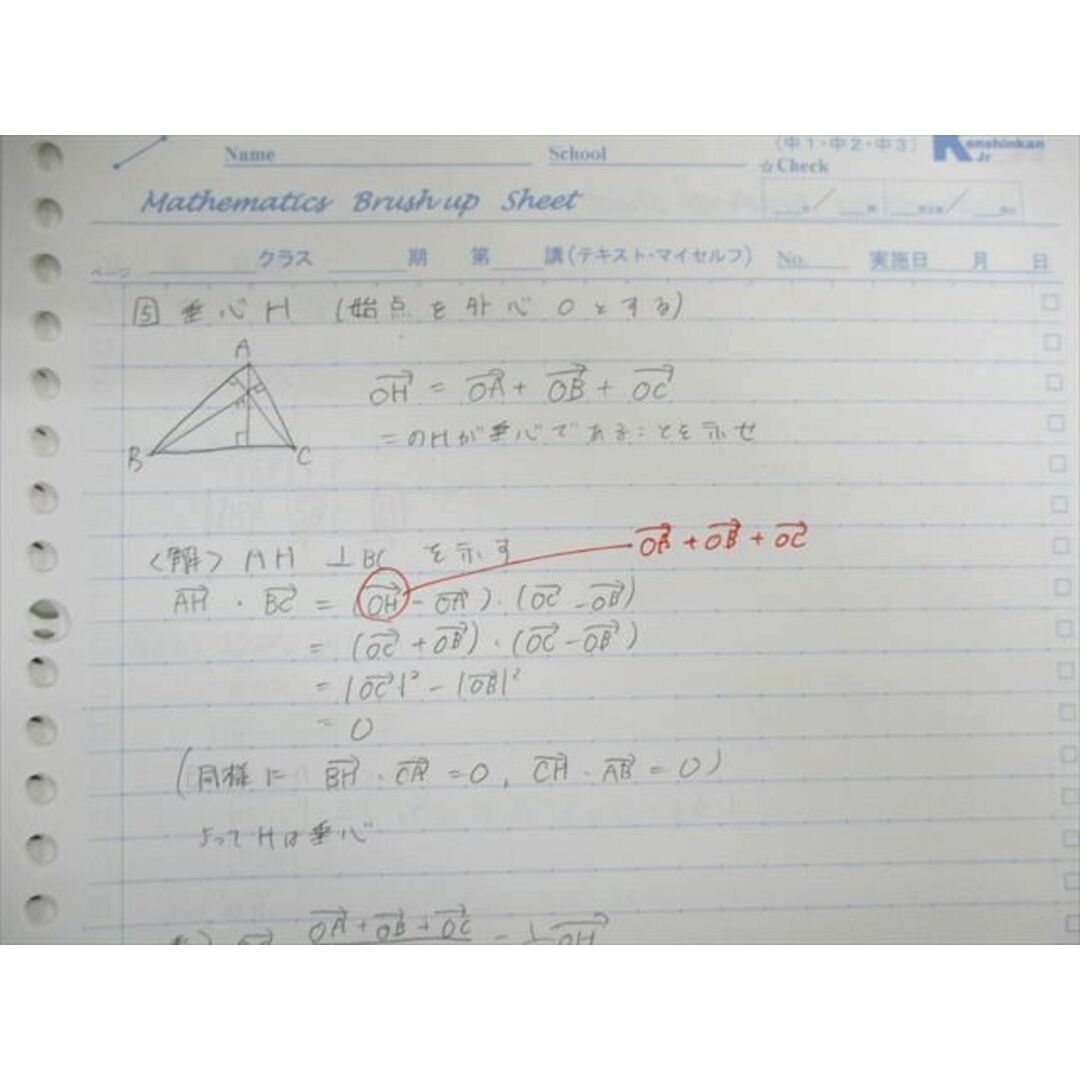 (中1・中2・中3) Kenshinkan Jr
Name School ☆Check
Mathematics Brush up Sheet
ページ クラス 期 第 講(テキスト・マイセルフ) No. 実施日 月 日
5 垂心H (始点を外心Oとする)
A
B C
$\overrightarrow{OH} = \overrightarrow{OA} + \overrightarrow{OB} + \overrightarrow{OC}$
このHが垂心であることを示せ
$\overrightarrow{OA} + \overrightarrow{OB} + \overrightarrow{OC}$
<解> AH ⊥ BC を示す
$\overrightarrow{AH} \cdot \overrightarrow{BC} = (\overrightarrow{OH} - \overrightarrow{OA}) \cdot (\overrightarrow{OC} - \overrightarrow{OB})$
$= (\overrightarrow{OC} + \overrightarrow{OB}) \cdot (\overrightarrow{OC} - \overrightarrow{OB})$
$= |\overrightarrow{OC}|^2 - |\overrightarrow{OB}|^2$
= 0
(同様に $\overrightarrow{BH} \cdot \overrightarrow{CA} = 0, \overrightarrow{CH} \cdot \overrightarrow{AB} = 0$)
よってHは垂心
$\overrightarrow{OA} + \overrightarrow{OB} + \overrightarrow{OC}$ $\overrightarrow{OH}$